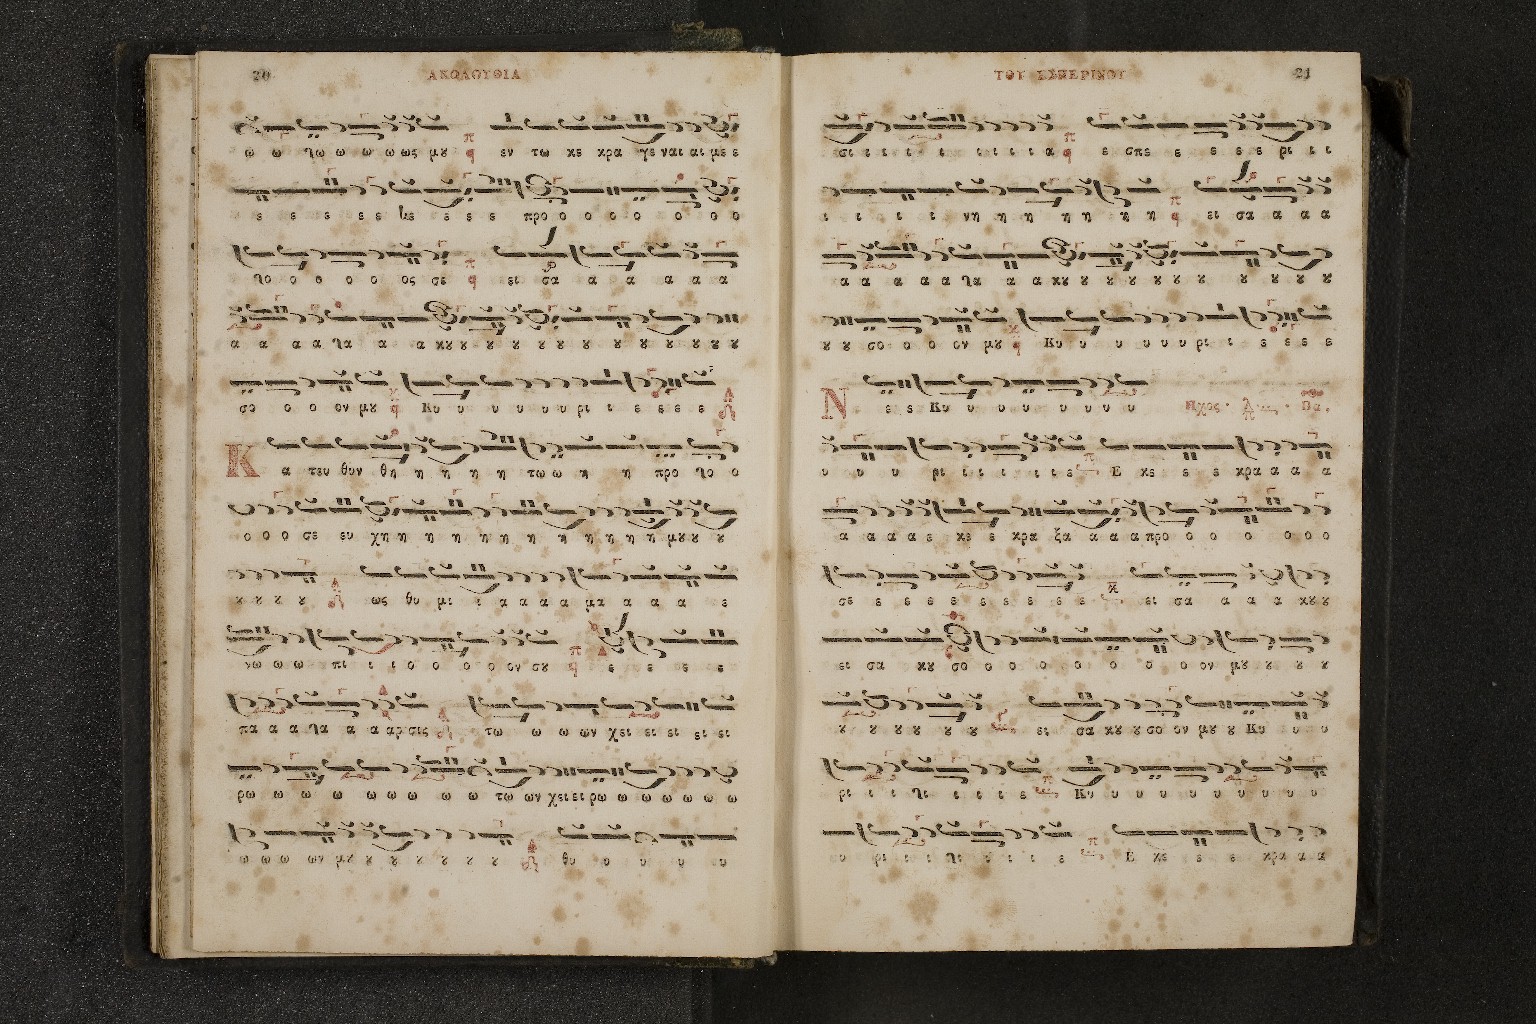 20 ΑΚΟΛΟΥΘΙΑ
ω ω λω ω ω ω ως μȣ εν τω κε κρα γε ναι αι με ε
ε ε ε ε ε ε με ε ε ε προ ο ο ο ο ο ο ο
λο ο ο ο ο ος σε ει σα α α α α α
α α α α λα α α κȣ ȣ ȣ ȣ ȣ ȣ ȣ ȣ ȣ ȣ ȣ ȣ ȣ
σο ο ο ον μȣ Κυ υ υ υ υ υ ρι ι ε ε ε ε
Κ α τευ θυν θη η η η η τω ω η η προ λο ο
ο ο ο σε ευ χη η η η η η η η η η η μȣ ȣ ȣ
ȣ ȣ ȣ ȣ ως θυ μι ι α α α α μα α α α ε
νω ω ω πι ι ι ο ο ο ο ον σȣ ε ε ε ε
πα α α λα α α αρ σις τω ω ω ων χει ει ει ει ει
ρω ω ω ω ω ω ω ω ω τω ων χει ει ρω ω ω ω ω ω
ω ω ω ων μȣ ȣ ȣ ȣ ȣ ȣ ȣ θυ υ υ υ υ
ΤΟΥ ΕΣΠΕΡΙΝΟΥ 21
σι ι ι ι ι ι ι ι α ε σπε ε ε ε ε ρι ι ι
ι ι ι ι νη η η η η η η ει σα α α α
α α α α α λα α α κȣ ȣ ȣ ȣ ȣ ȣ ȣ ȣ ȣ ȣ ȣ ȣ
ȣ ȣ σο ο ο ον μȣ Κυ υ υ υ υ υ ρι ι ε ε ε ε
Ν ε ε Κυ υ υ υ υ υ υ Ηχος Πα.
υ υ υ ρι ι ι ι ι ι ε Ε κε ε ε ε κρα α α α
α α α α ε κε ε κρα ξα α α α προ ο ο ο ο ο ο
σε ε ε ε ε ε ε ε ε ε ει σα α α α κȣ ȣ
ει σα κȣ σο ο ο ο ο ο ο ο ο ον μȣ ȣ ȣ ȣ
ȣ ȣ ȣ ȣ ȣ ȣ ει σα κȣ ȣ σο ον μȣ ȣ Κυ υ υ
ρι ι ι λι ι ι ι ε Κυ υ υ υ υ υ υ υ υ υ
υ ρι ι ι λι ι ι ι ε Ε κε ε ε κρα α α